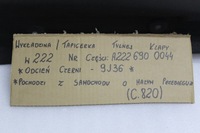 WYKŁADZINA / TAPICERKA TYLNEJ KLAPY
W222 NR CZĘŚCI: A222 690 0044
*ODCIEŃ CZERNI - 9J36*
*POCHODZI Z SAMOCHODU O MAŁYM PRZEBIEGU*
(C.820)